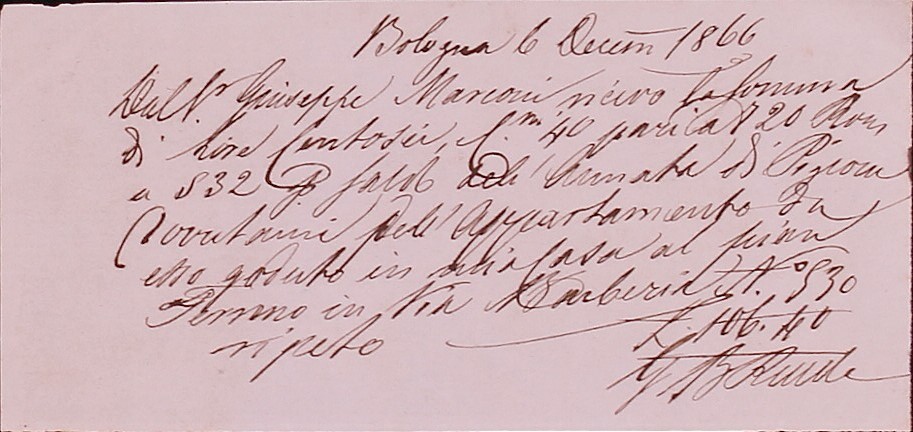 Bologna 6 Decem 1866
Dal Sr Giuseppe Marconi ricevo la somma
di Lire Centosei, C.mi 40 pari a £ 20 Rom
a 532 p saldo dell' Annata di Pigione
dell' Appartamento da
esso goduto in mia Casa al pian
Terreno in Via Barberia N.° 530
ripeto L. 106.40
G B